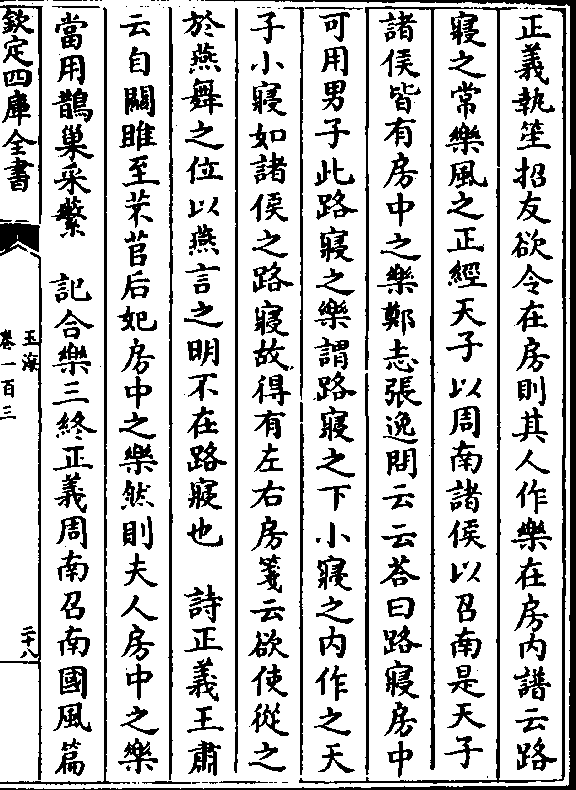 正義執笙招友欲令在房則其人作樂在房内譜云路
寝之常樂風之正經天子以周南諸侯以召南是天子
諸侯皆有房中之樂鄭志張逸問云云荅曰路寝房中
可用男子此路寝之樂謂路寝之下小寝之内作之天
子小寝如諸侯之路寝故得有左右房箋云欲使從之
於燕舞之位以燕言之明不在路寝也　詩正義王肅
云自關雎至芣苢后妃房中之樂然則夫人房中之樂
當用鵲巢采蘩　記合樂三終正義周南召南國風篇
欽定四庫全書
玉海
卷一百三
二十八